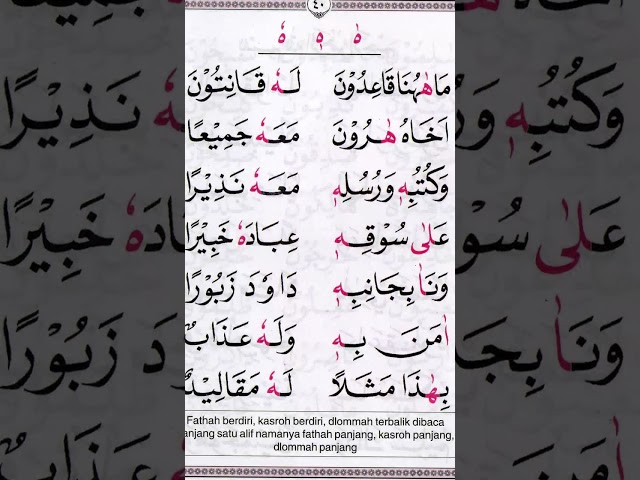 ٤٠
هٰ هٖ هٗ
مَا هٰهُنَا قَاعِدُوْنَ لَهٗ قَانِتُوْنَ
اَخَاهُ هٰرُوْنَ مَعَهٗ جَمِيْعًا
وَكُتُبِهٖ وَرُسُلِهٖ مَعَهٗ نَذِيْرًا
عَلٰى سُوْقِهٖ عِبَادَهٗ خَبِيْرًا
وَنَاٰ بِجَانِبِهٖ دَاوٗدَ زَبُوْرًا
اٰمَنَ بِهٖ وَلَهٗ عَذَابٌ
بِهٰذَا مَثَلًا لَهٗ مَقَالِيْدُ
Fathah berdiri, kasroh berdiri, dlommah terbalik dibaca
anjang satu alif namanya fathah panjang, kasroh panjang,
dlommah panjang